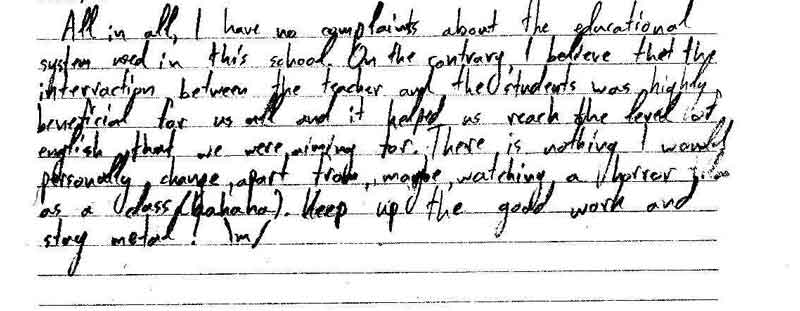 All in all, I have no complaints about the educational
system used in this school. On the contrary, I believe that the
interaction between the teacher and the students was highly
beneficial for us all and it helped us reach the level of
english that we were aiming for. There is nothing I would
personally change, apart from, maybe, watching a horror film
as a class (hahaha). Keep up the good work and
stay metal! \m/